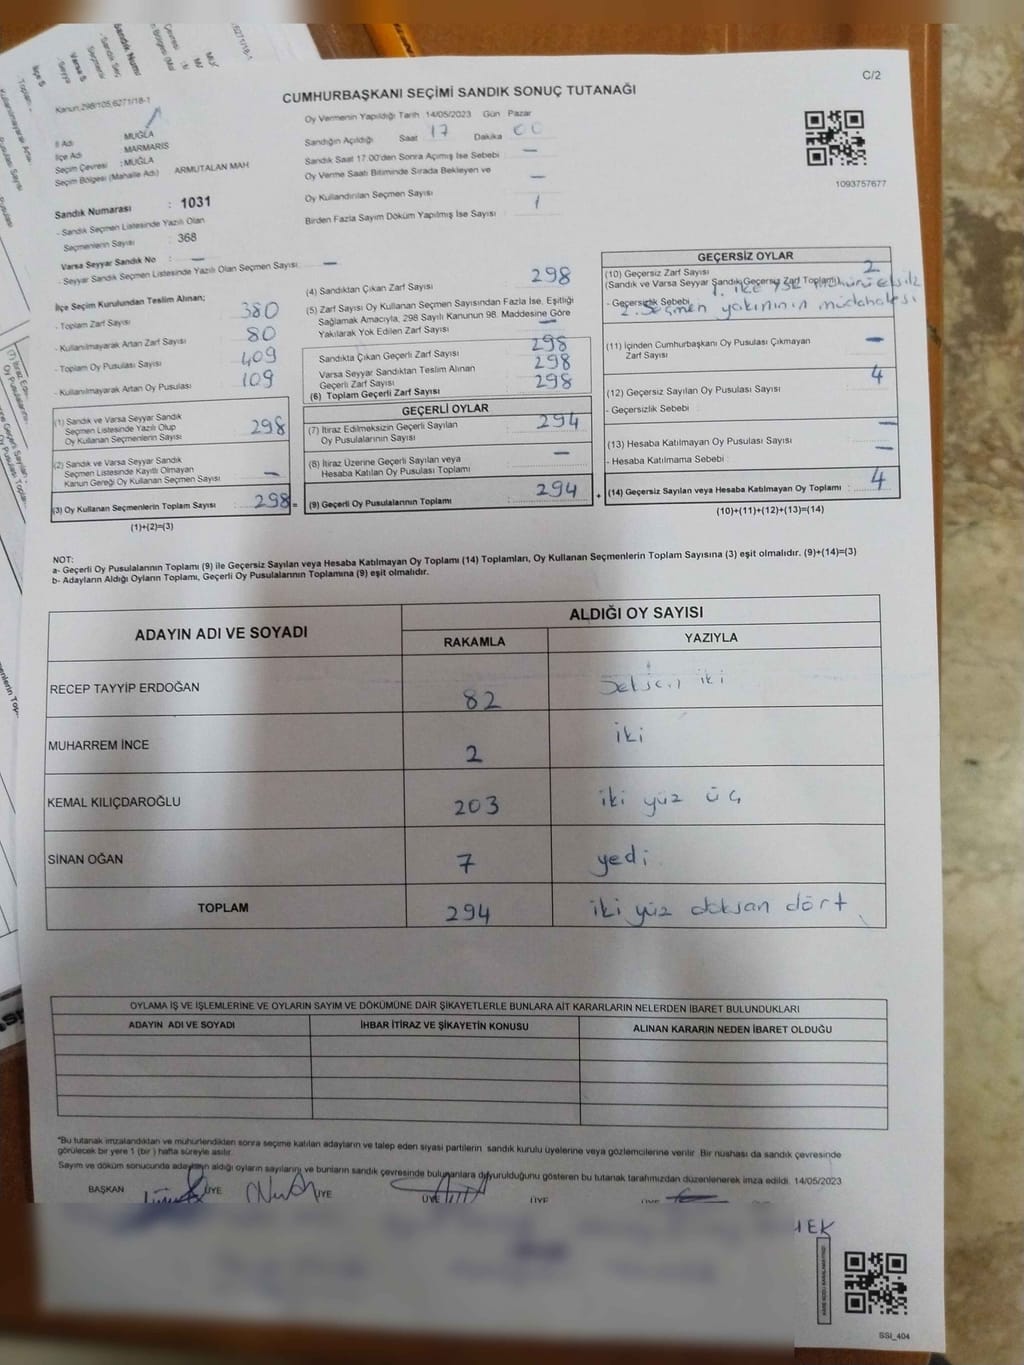 C/2
Kanun:298/105,6271/18-1
CUMHURBAŞKANI SEÇİMİ SANDIK SONUÇ TUTANAĞI
İl Adı : MUĞLA
İlçe Adı : MARMARİS
Seçim Çevresi : MUĞLA
Seçim Bölgesi (Mahalle Adı) ARMUTALAN MAH
Sandık Numarası : 1031
- Sandık Seçmen Listesinde Yazılı Olan
Seçmenlerin Sayısı : 368
Varsa Seyyar Sandık No : —
- Seyyar Sandık Seçmen Listesinde Yazılı Olan Seçmen Sayısı: —
Oy Vermenin Yapıldığı Tarih 14/05/2023 Gün Pazar
Sandığın Açıldığı Saat 17 Dakika 00
Sandık Saat 17.00'den Sonra Açımış İse Sebebi —
Oy Verme Saati Bitiminde Sırada Bekleyen ve
Oy Kullandırılan Seçmen Sayısı —
Birden Fazla Sayım Döküm Yapılmış İse Sayısı 1
1093757677
İlçe Seçim Kurulundan Teslim Alınan;
- Toplam Zarf Sayısı 380
- Kullanılmayarak Artan Zarf Sayısı 80
- Toplam Oy Pusulası Sayısı 409
- Kullanılmayarak Artan Oy Pusulası 109
(1) Sandık ve Varsa Seyyar Sandık
Seçmen Listesinde Yazılı Olup
Oy Kullanan Seçmenlerin Sayısı : 298
(2) Sandık ve Varsa Seyyar Sandık
Seçmen Listesinde Kayıtlı Olmayan
Kanun Gereği Oy Kullanan Seçmen Sayısı —
(3) Oy Kullanan Seçmenlerin Toplam Sayısı : 298 =
(1)+(2)=(3)
(4) Sandıktan Çıkan Zarf Sayısı : 298
(5) Zarf Sayısı Oy Kullanan Seçmen Sayısından Fazla İse, Eşitliği
Sağlamak Amacıyla, 298 Sayılı Kanunun 98. Maddesine Göre
Yakılarak Yok Edilen Zarf Sayısı : —
Sandıkta Çıkan Geçerli Zarf Sayısı : 298
Varsa Seyyar Sandıktan Teslim Alınan
Geçerli Zarf Sayısı : 298
(6) Toplam Geçerli Zarf Sayısı : 298
GEÇERLİ OYLAR
(7) İtiraz Edilmeksizin Geçerli Sayılan
Oy Pusulalarının Sayısı : 294
(8) İtiraz Üzerine Geçerli Sayılan veya
Hesaba Katılan Oy Pusulası Toplamı : —
(9) Geçerli Oy Pusulalarının Toplamı : 294 +
GEÇERSİZ OYLAR
(10) Geçersiz Zarf Sayısı 2
(Sandık ve Varsa Seyyar Sandık Geçersiz Zarf Toplamı)
- Geçersizlik Sebebi
2. Seçmen yakınının müdahalesi
(11) İçinden Cumhurbaşkanı Oy Pusulası Çıkmayan
Zarf Sayısı —
(12) Geçersiz Sayılan Oy Pusulası Sayısı 4
- Geçersizlik Sebebi :
(13) Hesaba Katılmayan Oy Pusulası Sayısı —
- Hesaba Katılmama Sebebi : —
(14) Geçersiz Sayılan veya Hesaba Katılmayan Oy Toplamı : 4
(10)+(11)+(12)+(13)=(14)
NOT:
a- Geçerli Oy Pusulalarının Toplamı (9) ile Geçersiz Sayılan veya Hesaba Katılmayan Oy Toplamı (14) Toplamları, Oy Kullanan Seçmenlerin Toplam Sayısına (3) eşit olmalıdır. (9)+(14)=(3)
b- Adayların Aldığı Oyların Toplamı, Geçerli Oy Pusulalarının Toplamına (9) eşit olmalıdır.
ADAYIN ADI VE SOYADI ALDIĞI OY SAYISI
RAKAMLA YAZIYLA
RECEP TAYYİP ERDOĞAN 82 Seksen iki
MUHARREM İNCE 2 iki
KEMAL KILIÇDAROĞLU 203 iki yüz üç
SİNAN OĞAN 7 yedi
TOPLAM 294 iki yüz doksan dört
OYLAMA İŞ VE İŞLEMLERİNE VE OYLARIN SAYIM VE DÖKÜMÜNE DAİR ŞİKAYETLERLE BUNLARA AİT KARARLARIN NELERDEN İBARET BULUNDUKLARI
ADAYIN ADI VE SOYADI İHBAR İTİRAZ VE ŞİKAYETİN KONUSU ALINAN KARARIN NEDEN İBARET OLDUĞU
*Bu tutanak imzalandıktan ve mühürlendikten sonra seçime katılan adayların ve talep eden siyasi partilerin sandık kurulu üyelerine veya gözlemcilerine verilir. Bir nüshası da sandık çevresinde
görülecek bir yere 1 (bir ) hafta süreyle asılır.
Sayım ve döküm sonucunda adayların aldığı oyların sayılarını ve bunların sandık çevresinde bulunanlara duyurulduğunu gösteren bu tutanak tarafımızdan düzenlenerek imza edildi. 14/05/2023
BAŞKAN ÜYE ÜYE ÜYE ÜYE ÜYE
SSI_404